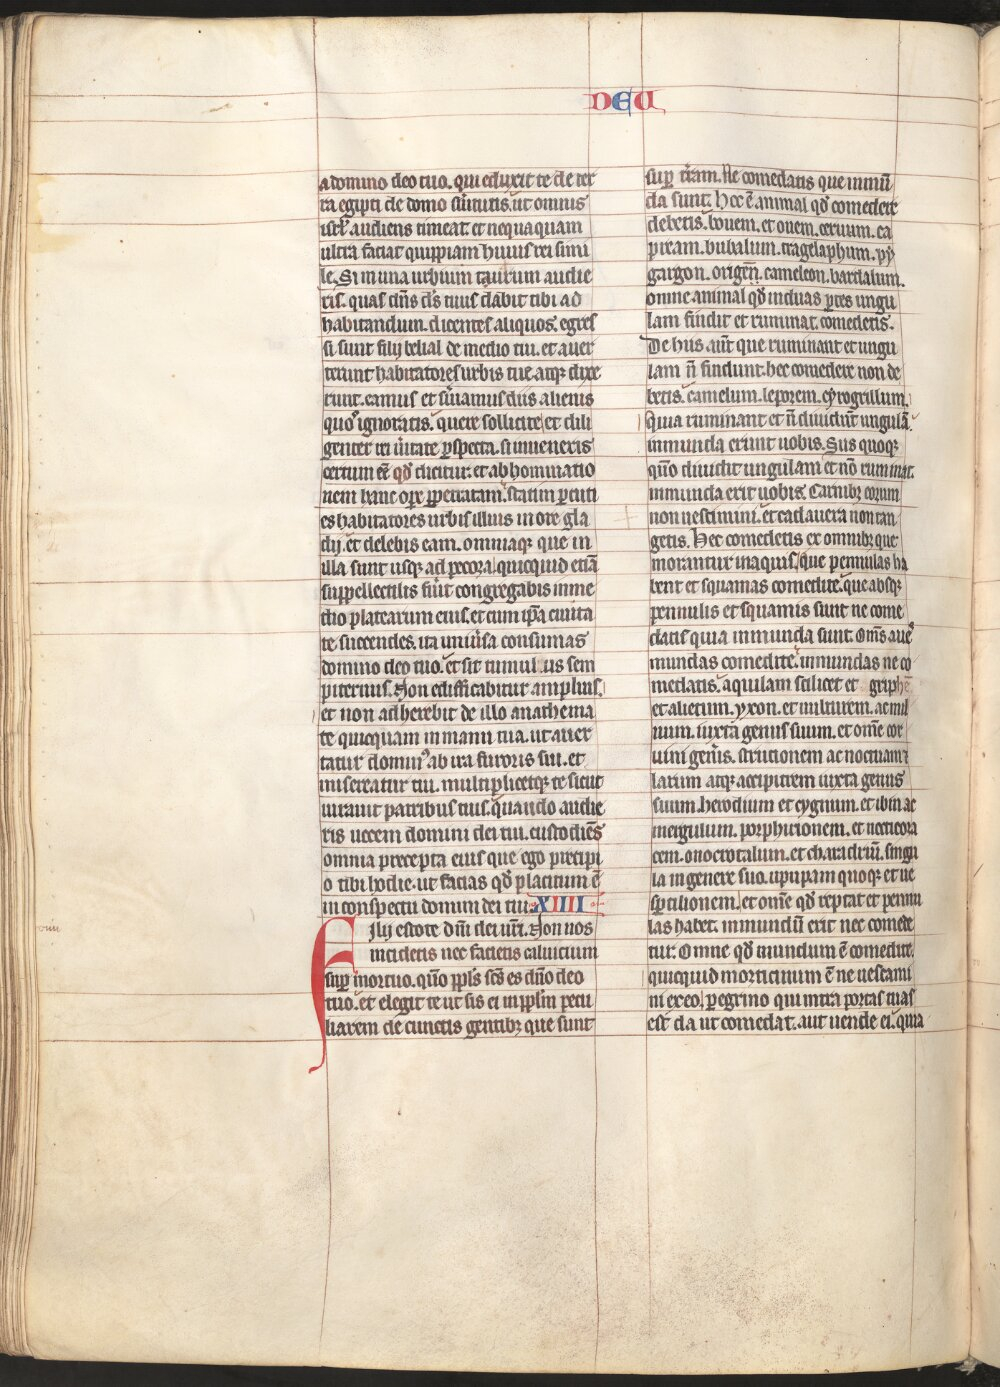 DEU
a domino deo tuo. qui eduxit te de ter
ra egipti de domo s̾uitutis. ut omnis
isrł audiens timeat. et nequaquam
ultra faciat quippiam huius rei simi
le. Si in una urbium tuarum audie
ris. quas dñs ds̄ tuus dabit tibi ad
habitandum. dicentes aliquos. egres
si sunt filij belial de medio tui. et auer
terunt habitatores urbis tue. atqꝫ dixe
runt. eamus et s̾uiamus diis alienis
quoˢ ignoratis. quere sollicite et dili
genter rei u̾itate ꝑspecta. si inueneris
certum eē qđ dicitur. et abhominatio
nem hanc opꝰe ꝑpetratam. statim ꝑcuti
es habitatores urbis illius in ore gla
dij. et delebis eam. omniaqꝫ que in
illa sunt usqꝫ ad pecora. quicquid etiā
suppellectilis fu̾it congregabis in me
dio platearum eius. et cum ip̄a ciuita
te succendes. ita uniu̾sa consumas
domino deo tuo. et sit tumulus sem
piternus. Non edifficabitur amplius.
et non adherebit de illo anathema
te quicquam in manu tua. ut auer
tatur dominꝰ ab ira furoris sui. et
misereatur tui. multiplicetqꝫ te sicut
iurauit patribus tuis. quando audie
ris uocem domini dei tui. custodiēs
omnia precepta eius que ego precipi
o tibi hodie. ut facias qđ placitum ē
in conspectu domini dei tui. XIIII
Filij estote dn̄i dei ur̄i. Non uos
incidetis nec facietis caluicium
suꝑ mortuo. qm̄o ppl̄s sc̄s es dn̄o deo
tuo. et elegit te ut sis ei in ppl̄m pecu
liarem de cunctis gentibꝫ que sunt
suꝑ tr̄am. Ne comedatis que inmū
da sunt. Hec ē animal qđ comedere
debetis. bouem. et ouem. ceruum. ca
pream. bubalum. tragelaphum. py
gargon. origen. cameleon. bardalum.
omne animal qđ in duas ꝑtes ungu
lam findit et ruminat. comedetis.
De hiis aūt que ruminant et ungu
lam n̄ findunt. hec comedere non de
betis. camelum. leporem. cyrogrillum.
Quia ruminant et n̄ diuidūt ungulā.
inmunda erunt uobis. Sus quoqꝫ
qm̄o diuidit ungulam et nō ruminat.
inmunda erit uobis. Carnibꝫ eorum
non uescimini. et cadauera non tan
getis. Hec comedetis ex omnibꝫ que
morantur in aquis. que pennulas ha
bent et squamas comedite. que absqꝫ
pennulis et squamis sunt ne come
datis quia inmunda sunt. Om̄s aueˢ
mundas comedite. inmundas ne co
medatis. aquilam scilicet et griphē
et alietum. yxon. et uulturem. ac mil
uum. iuxta genus suum. et om̄e cor
uini gen̾is. strutionem ac noctuam ⁊
larum atqꝫ accipitrem iuxta genus
suum. herodium et cygnum. et ibin ac
mergulum. porphirionem. et nocticora
cem. onocrotalum. et charadriū. singu
la in genere suo. upupam quoqꝫ et ue
sꝑtilionem. et om̄e qđ reptat et pennu
las habet. inmundū erit nec comede
tur. Omne qđ mundum ē comedite.
quicquid morticinum ē ne uescami
ni ex eo. ꝑegrino qui intra portas tuas
est da ut comedat. aut uende ei. quia